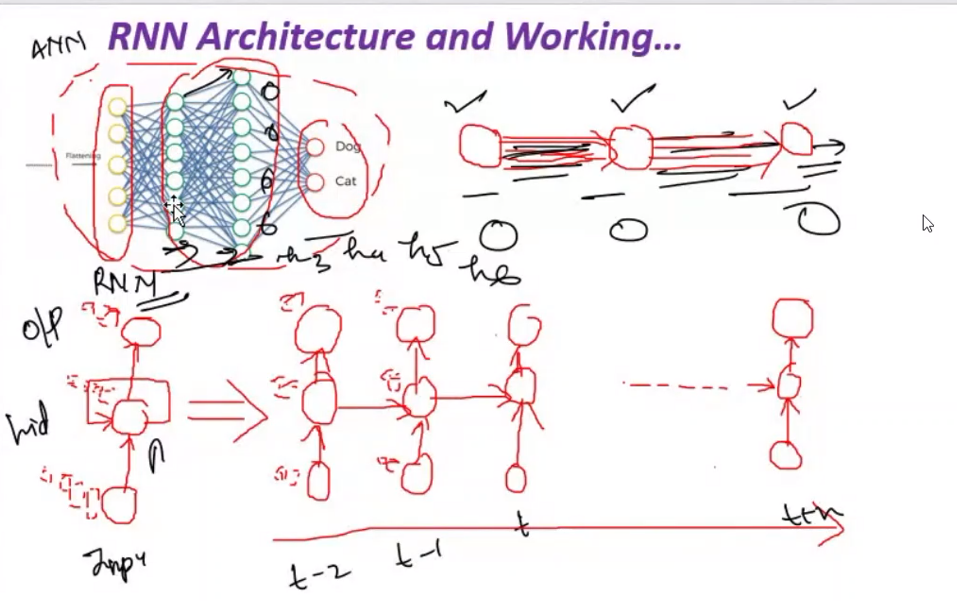 RNN Architecture and Working...
ANN
Flattening
Dog
Cat
h3 h4 h5 h6
RNN
O/P
hid
t-2
t-1
t
t+n